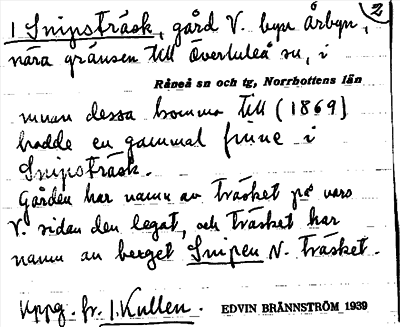 2
1 Snipsträsk, gård V. byn Årbyn,
nära gränsen till Överluleå sn, i
Råneå sn och tg, Norrbottens län
innan dessa kommo till (1869)
bodde en gammal finne i
Snipsträsk.
Gården har namn av träsket på vars
V. sidan den legat, och träsket har
namn av berget Snipen N. träsket.
Uppg. fr. 1. Kullen.
EDVIN BRÄNNSTRÖM 1939